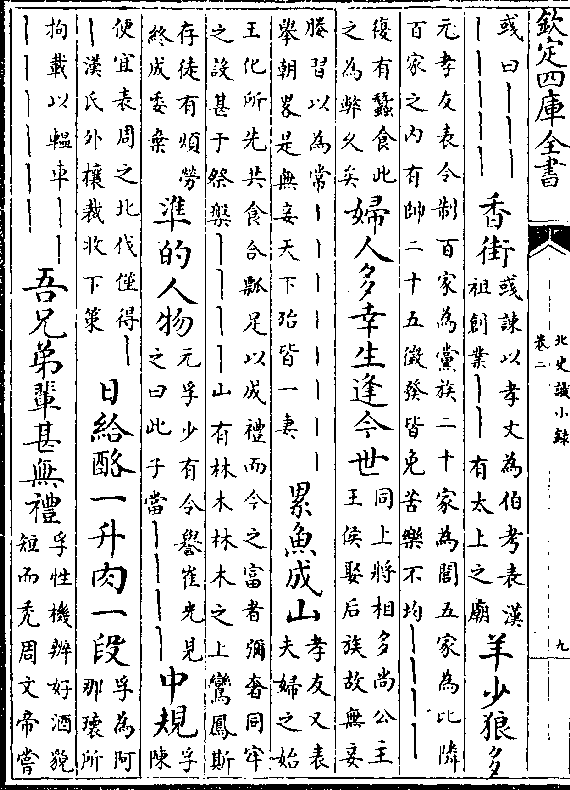 欽定四庫全書
北史識小錄
卷二
九
或曰｜｜｜｜
｜｜｜｜｜
香街
或諫以孝文為伯考表漢
祖創業｜｜有太上之廟
羊少狼多
元孝友表令制百家為黨族二十家為閭五家為比隣
百家之內有帥二十五徵發皆免苦樂不均｜｜｜｜
復有蠶食此
之為弊久矣
婦人多幸生逢今世
同上將相多尚公主
王侯娶后族故無妾
媵習以為常｜｜｜｜｜｜｜｜
舉朝畧是無妾天下殆皆一妻
累魚成山
孝友又表
夫婦之始
王化所先共食合瓢足以成禮而今之富者彌奢同牢
之設甚于祭槃｜｜｜｜山有林木林木之上鸞鳳斯
存徒有煩勞
終成委棄
準的人物
元孚少有令譽崔光見
之曰此子當｜｜｜｜
中規
孚
陳
便宜表周之北伐僅得｜
｜漢氏外攘裁收下策
日給酪一升肉一段
孚為阿
那瓌所
拘載以轀車｜｜
｜｜｜｜｜｜
吾兄弟輩甚無禮
孚性機辨好酒貌
短而禿周文帝嘗